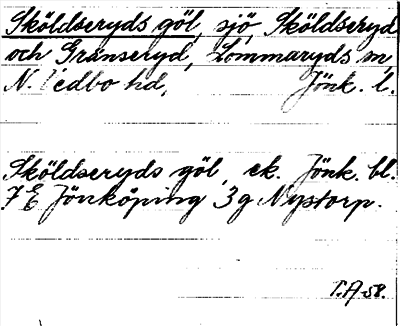 Sköldseryds göl, sjö, Sköldseryd
och Gränseryd, Lommaryds sn
N. Vedbo hd, Jönk. l.
Sköldseryds göl, ek. Jönk. bl.
7 E Jönköping 3g Nystorp.
T.A-58.